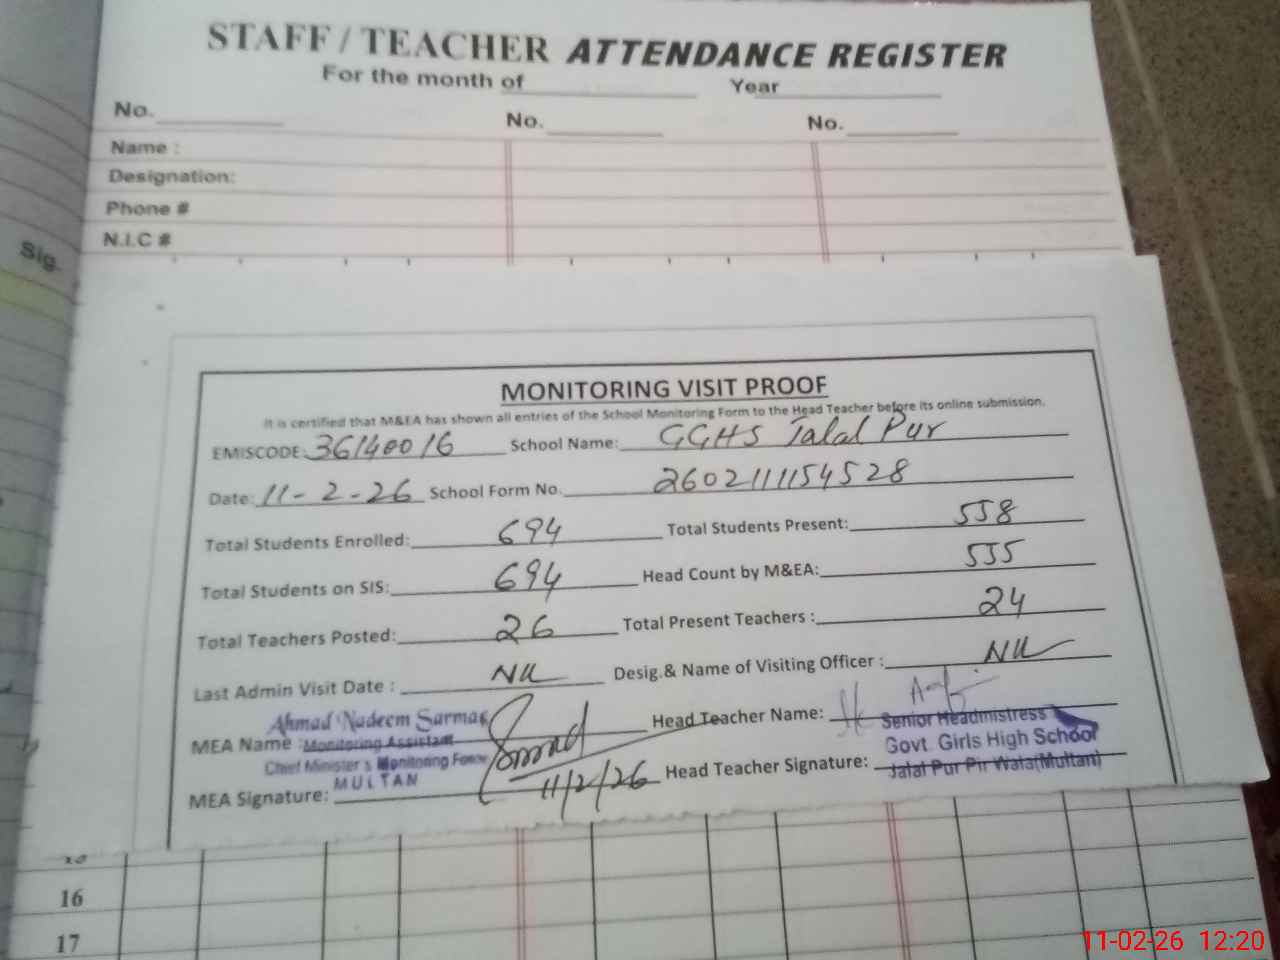 STAFF / TEACHER ATTENDANCE REGISTER
For the month of Year
No. No. No.
Name :
Designation:
Phone #
N.I.C #
Sig.
MONITORING VISIT PROOF
It is certified that M&EA has shown all entries of the School Monitoring Form to the Head Teacher before its online submission.
EMISCODE: 36140016 School Name: GGHS Jalal Pur
Date: 11-2-26 School Form No. 2602111154528
Total Students Enrolled: 694 Total Students Present: 558
Total Students on SIS: 694 Head Count by M&EA: 555
Total Teachers Posted: 26 Total Present Teachers : 24
Last Admin Visit Date : Nil Desig.& Name of Visiting Officer : Nil
MEA Name : Ahmad Nadeem Sarmad Head Teacher Name:
Monitoring Assistant Senior Headmistress
Chief Minister's Monitoring Force Govt. Girls High School
MULTAN Jalal Pur Pir Wala(Multan)
MEA Signature: 11/2/26 Head Teacher Signature:
16
17
11-02-26 12:20